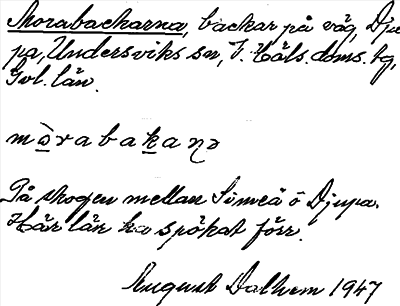 Morabackarna, backar på väg, Dju
pa, Undersviks sn, J. Häls. doms. tg,
Gvl. län.
mòrabakaṇə
På skogen mellan Simeå o Djupa.
Här lär ha spökat förr.
August Dalhem 1947